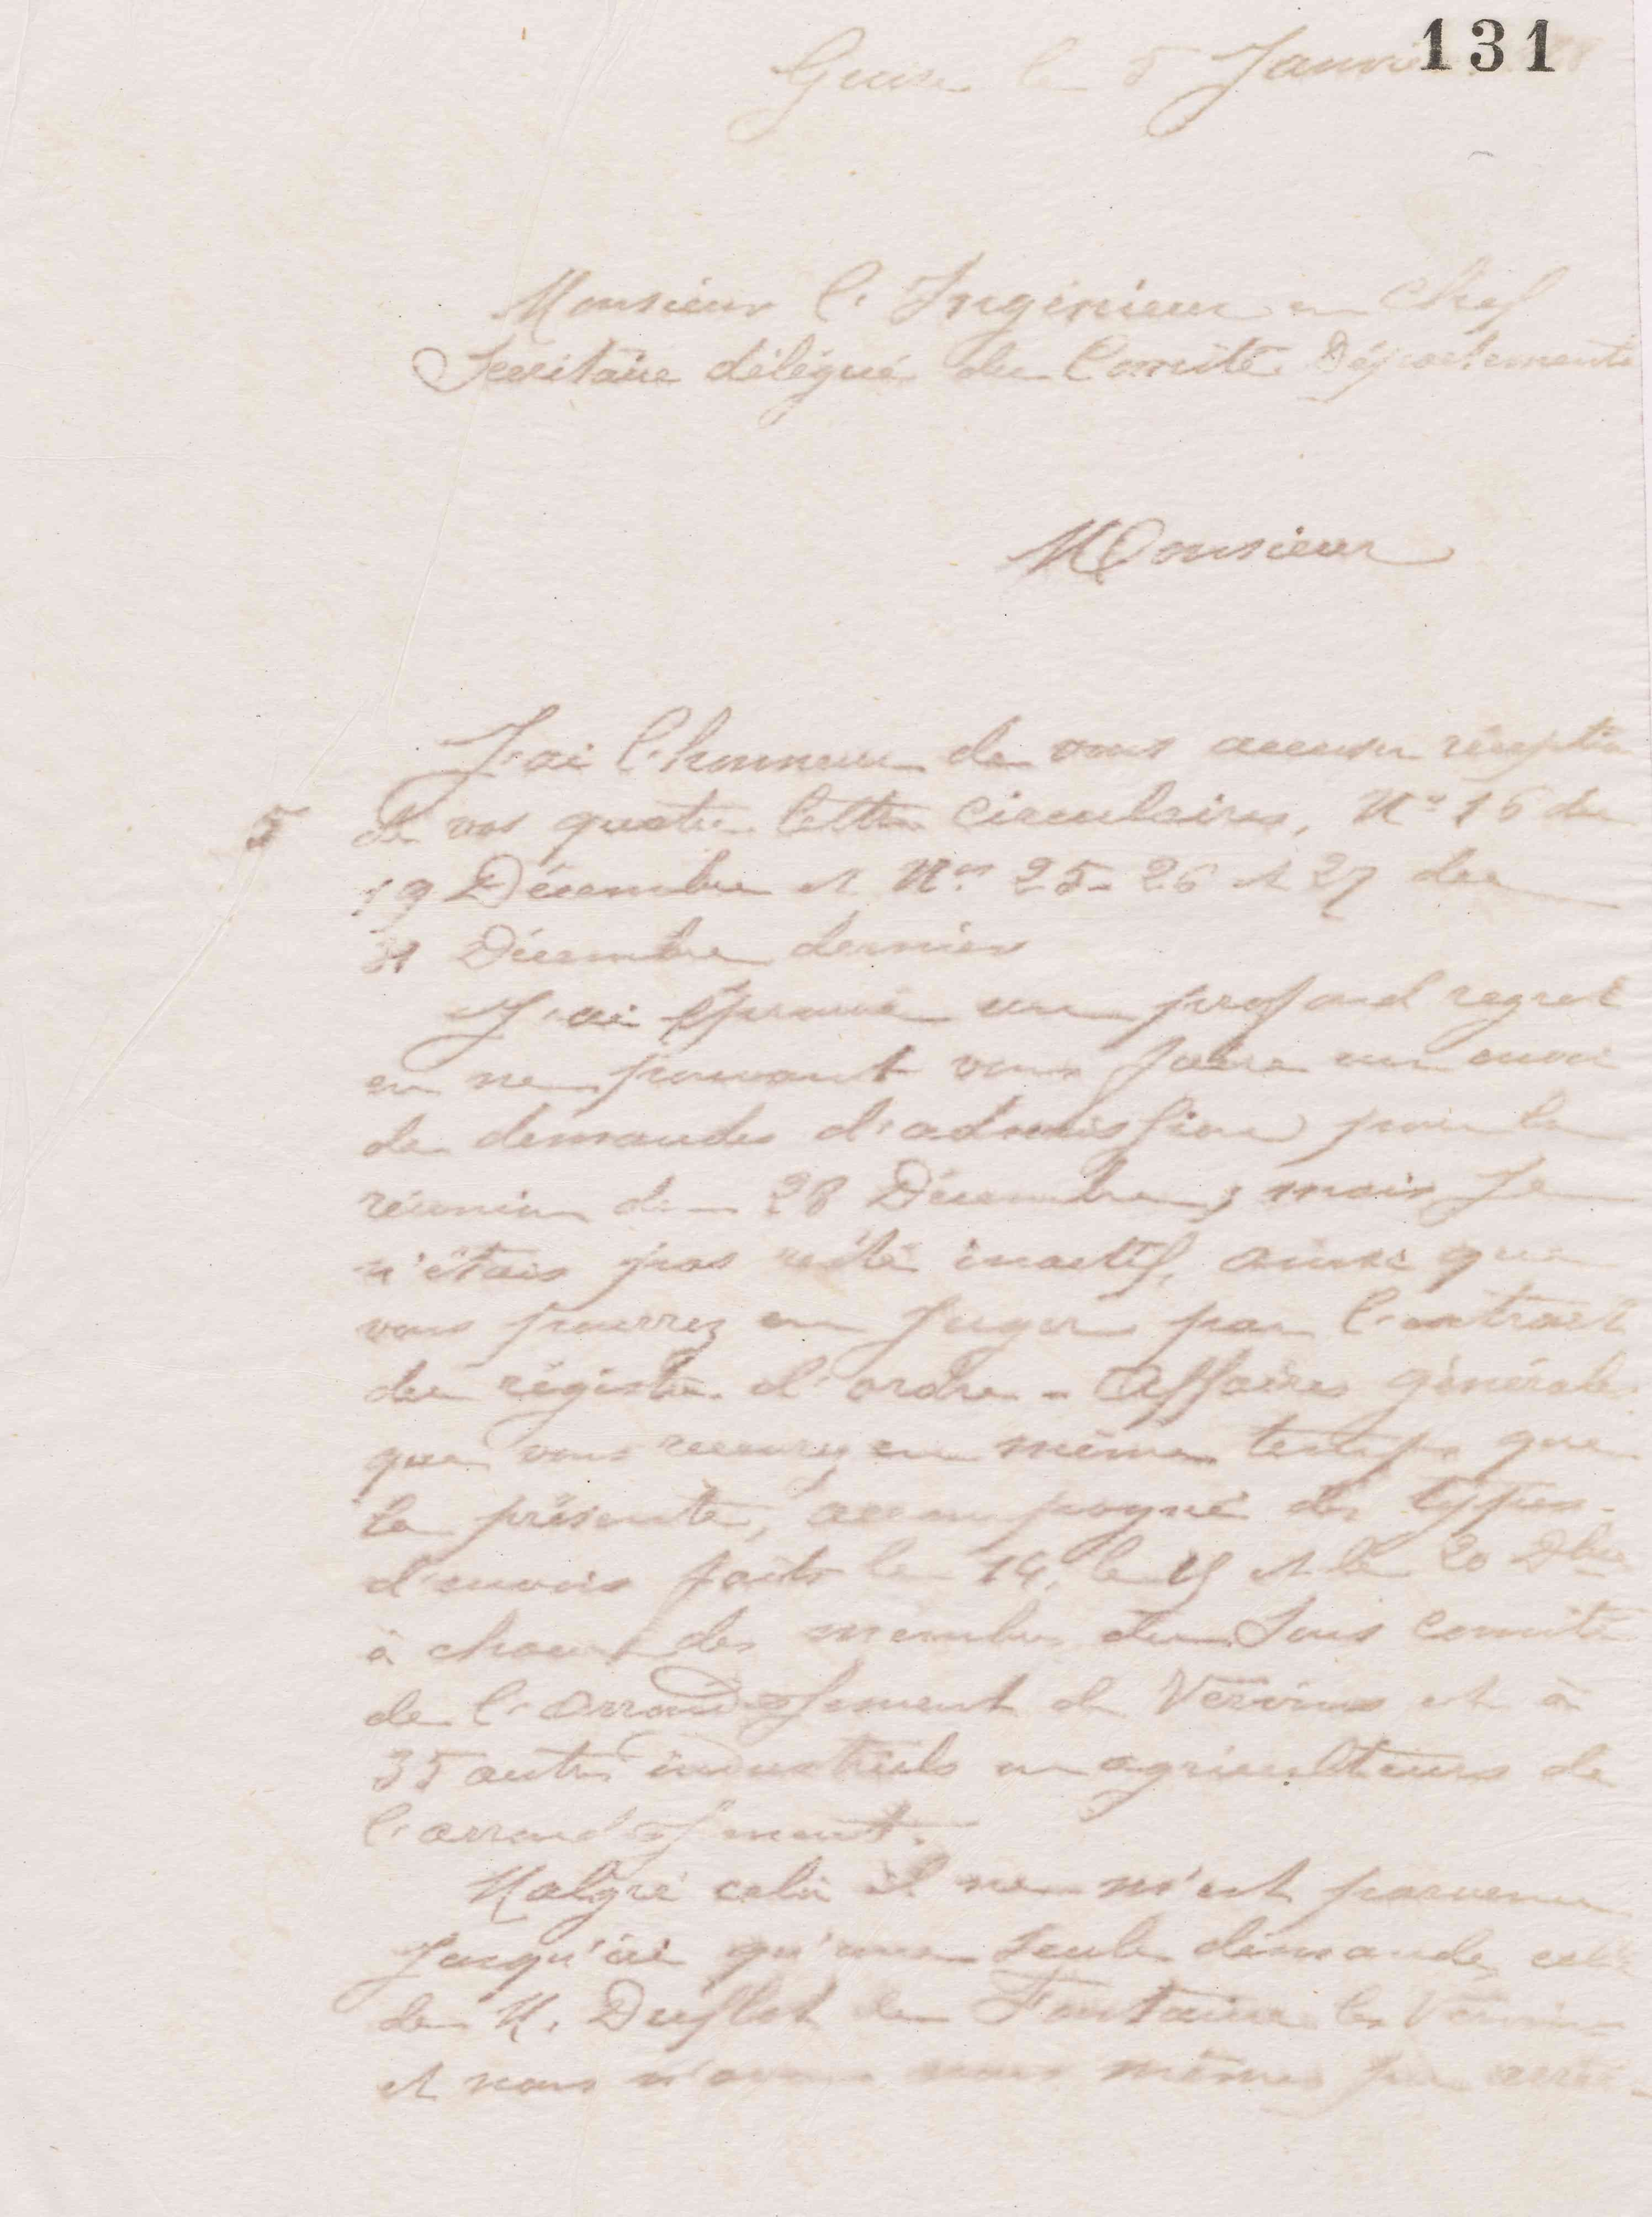 131
Guise le 5 Janvier
Monsieur l'Ingénieur en Chef
Secrétaire délégué du Comité Départemental
Monsieur
J'ai l'honneur de vous accuser réception
5 de vos quatre lettres circulaires, Nº 16 du
19 Décembre et Nos 25-26 et 27 du
31 Décembre dernier
J'ai éprouvé un profond regret
en ne pouvant vous faire un envoi
de demandes d'admission pour la
réunion du 28 Décembre; mais je
n'étais pas resté inactif, ainsi que
vous pourrez en juger par l'extrait
du régistre d'ordre - Affaires générales
que vous recevrez en même temps que
la présente, accompagné des types
d'envois faits le 14, le 15 et le 20 Dbre
à chacun des membres du Sous Comité
de l'Arrondissement de Vervins et à
35 autres industriels ou agriculteurs de
l'arrondissement.
Malgré cela il ne m'est parvenu
jusqu'ici qu'une seule demande, celle
de M. Duflot de Fontaine les Vervins
et nous n'avons nous mêmes pu